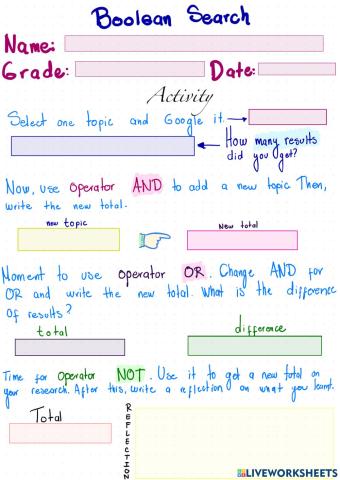 Boolean Search
Name:
Grade: Date:
Activity
Select one topic and Google it.
How many results
did you get?
Now, use operator AND to add a new topic Then,
write the new total.
new topic New total
Moment to use operator OR. Change AND for
OR and write the new total. What is the difference
of results?
total difference
Time for operator NOT. Use it to get a new total on
your research. After this, write a reflection on what you learnt.
Total
REFLECTION
LIVEWORKSHEETS